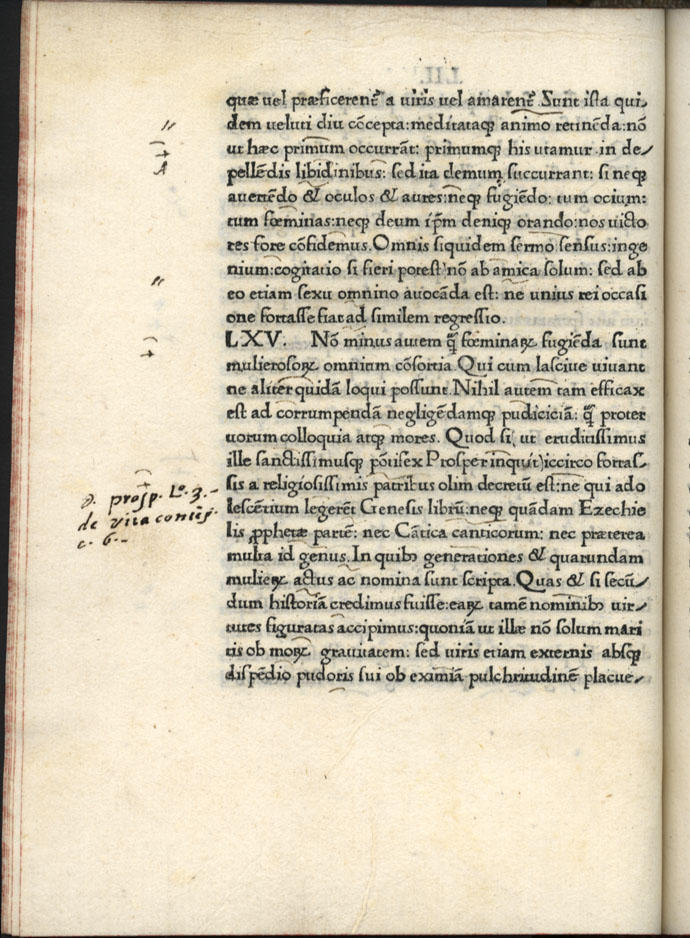 quæ uel præficerent᷑ a uiris uel amarent᷑. Sunt ista qui-
dem ueluti diu cōcepta: meditataqꝫ animo retinēda: nō
ut hæc primum occurrāt: primumqꝫ his utamur in de-
pellēdis libidinibus: sed ita demum succurrant: si neqꝫ
auertēdo & oculos & aures: neqꝫ fugiēdo: tum ocium:
tum fœminas: neqꝫ deum ip̄m deniqꝫ orando: nos uicto
res fore cōfidemus. Omnis siquidem sermo sensus: inge
nium: cogitatio si fieri potest) nō ab amica solum: sed ab
eo etiam sexu omnino auocāda est: ne unius rei occasi
one fortasse fiat ad similem regressio.
LXV. Nō minus autem q̄ fœminaꝝ fugiēda sunt
mulierosoꝝ omnium cōsortia. Qui cum lasciue uiuant
ne aliter quidā loqui possunt. Nihil autem tam efficax
est ad corrumpendā negligēdamqꝫ pudiciciā: q̄ proter
uorum colloquia atqꝫ mores. Quod si, ut eruditissimus
ille sanctissimusqꝫ pōtifex Prosper inquit) iccirco fortas-
sis a religiosissimis patribus olim decretū est: ne qui ado
lescētium legerēt Genesis librū: neqꝫ quādam Ezechie
lis ꝓphetæ partē: nec Cātica canticorum: nec præterea
multa id genus. In quibꝫ generationes & quarundam
mulieꝝ actus ac nomina sunt scripta. Quas & si secū-
dum historiā credimus fuisse: eaꝝ tamē nominibꝫ uir-
tutes figuratas accipimus: quoniā ut illæ nō solum mari
tis ob moꝝ grauitatem: sed uiris etiam externis absqꝫ
dispēdio pudoris sui ob eximiā pulchritudinē placue-
prosp. Lo. 3.
de vita contēp.
c. 6.